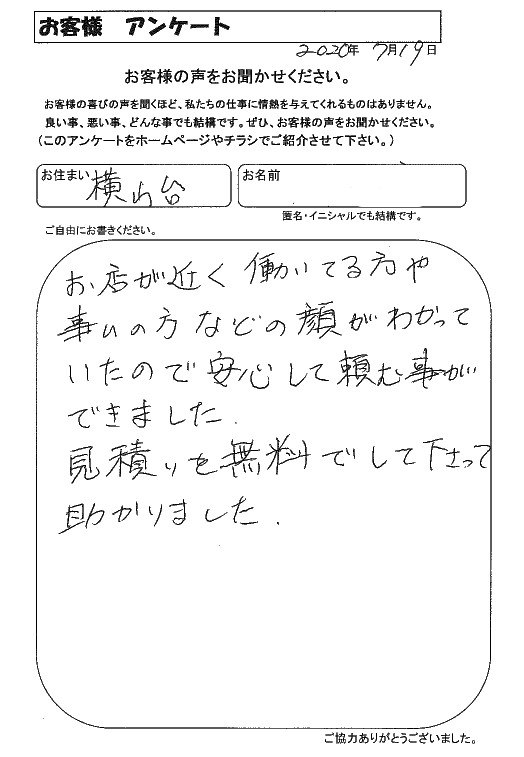 お客様　アンケート
2020年 7月19日
お客様の声をお聞かせください。
お客様の喜びの声を聞くほど、私たちの仕事に情熱を与えてくれるものはありません。
良い事、悪い事、どんな事でも結構です。ぜひ、お客様の声をお聞かせください。
（このアンケートをホームページやチラシでご紹介させて下さい。）
お住まい 横山台
お名前
匿名・イニシャルでも結構です。
ご自由にお書きください。
お店が近く 働いてる方や
事ムの方などの顔がわかって
いたので安心して頼む事が
できました.
見積りを無料でして下さって
助かりました.
ご協力ありがとうございました。